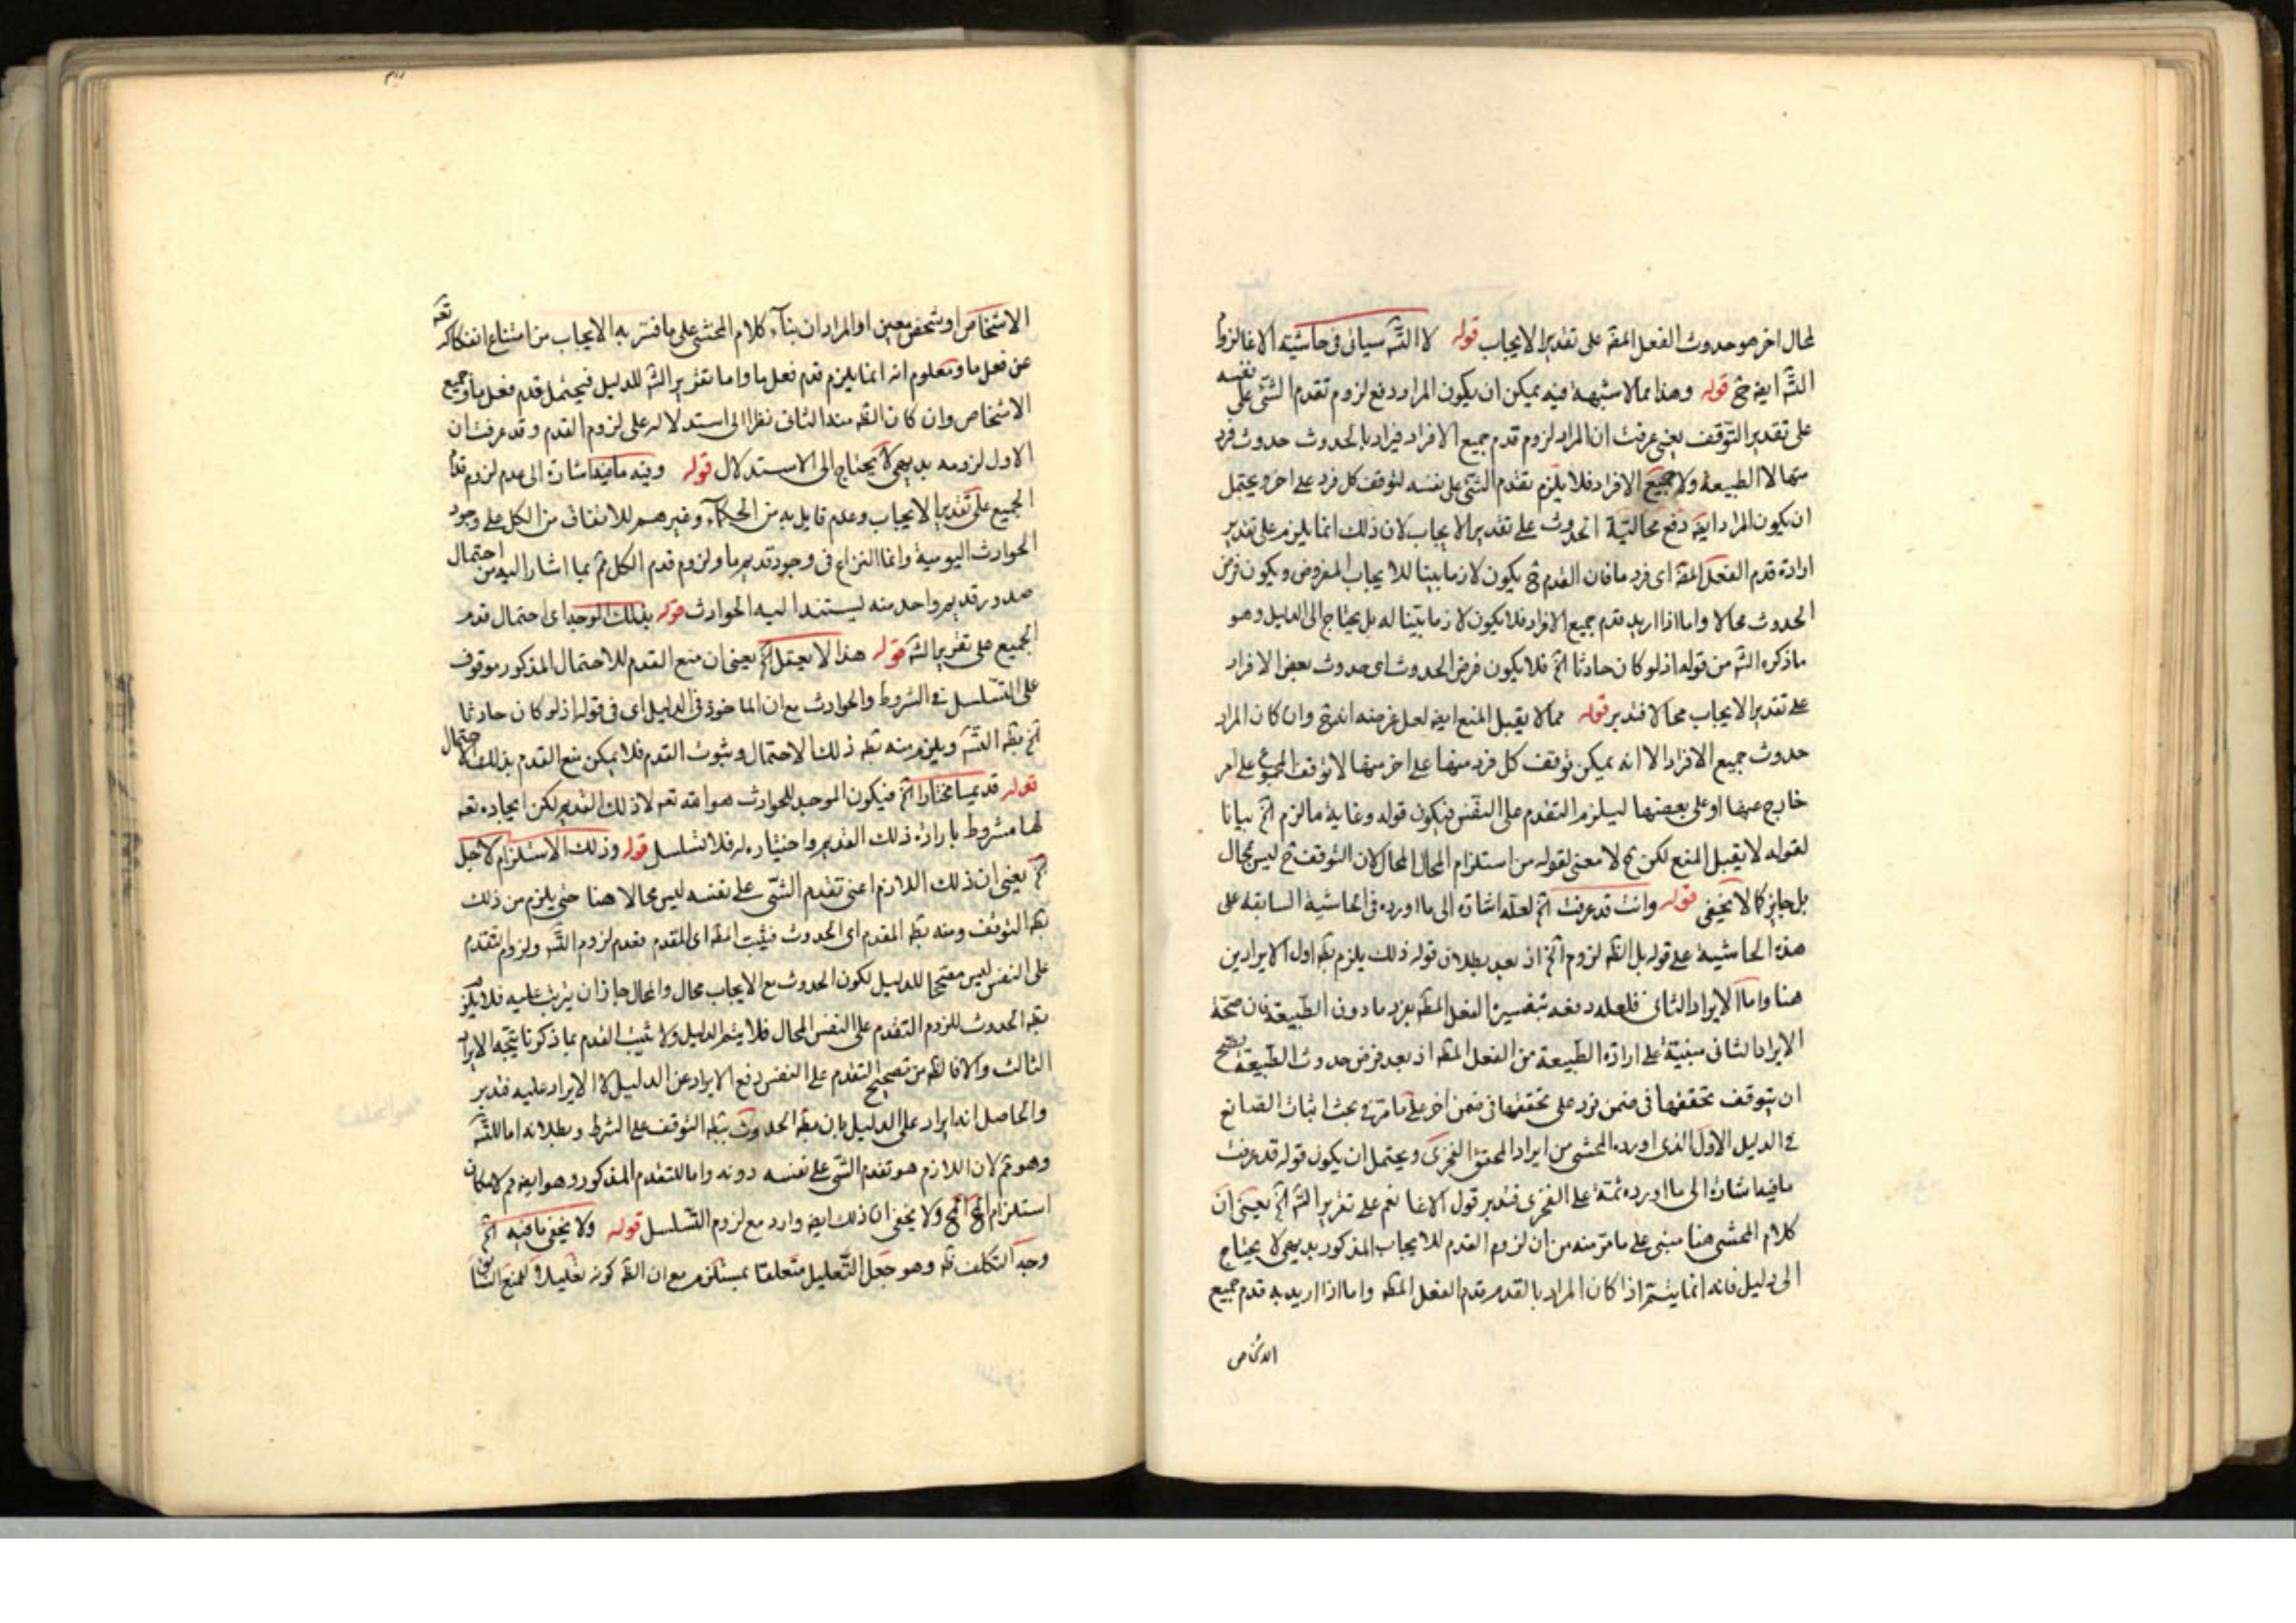 لمحال اخر هو حدوث الفعل المقه على تقدير الايجاب قوله لا الته سيانى فى حاشيته الاغا لزوم
الته ايضه ح قوله وهذا مما لا شبهة فيه يمكن ان يكون المراد دفع لزوم تقدم الشئ على نفسه
على تقدير التوقف يعنى عرفت ان المراد لزوم قدم جميع الافراد فيراد بالحدوث حدوث فرد
منها لا الطبيعة ولا جميع الافراد فلا يلزم تقدم الشئ على نفسه لتوقف كل فرد على اخر ويحتمل
ان يكون المراد ايضه دفع محالية الحدوث على تقدير الايجاب لان ذلك انما يلزم على تقدير
ارادة قدم الفعل المقه اى فرد ما فان القدم ح يكون لازما بينا للايجاب المفروض ويكون فرض
الحدوث محالا واما اذا اريد قدم جميع الافراد فلا يكون لازما بينا له بل يحتاج الى الدليل وهو
ماذكره الشه من قوله اذ لو كان حادثا الخ فلا يكون فرض الحدوث اى حدوث بعض الافراد
على تقدير الايجاب محالا فتدبر قوله مما لا يقبل المنع ايضه لعل غرضه انه ح وان كان المراد
حدوث جميع الافراد الا انه يمكن توقف كل فرد منها على اخر منها لا توقف المجموع على امر
خارج عنها او على بعضها ليلزم التقدم على النفس فيكون قوله وغاية مالزم الخ بيانا
لقوله لا يقبل المنع لكن ح لا معنى لقوله من استلزام المحال المحال لان التوقف ح ليس بمحال
بل جايز كما لا يخفى قوله وانت قد عرفت الخ لعله اشارة الى ما اورده فى الحاشية السابقة على
هذه الحاشية على قوله بل الظه لزوم الخ اذ بعد بطلان قوله ذلك يلزم بطه اول الايرادين
هنا واما الايراد الثانى فلعله دفعه بتفسير الفعل المطه بفرد ما دون الطبيعة فان صحة
الايراد الثانى مبنية على ارادة الطبيعة من الفعل المطه اذ بعد فرض حدوث الطبيعة يصح
ان يتوقف تحققها فى ضمن فرد على تحققها فى ضمن اخر على ما مر فى بحث اثبات الصانع
فى الدليل الاول الذى اورده المحشى من ايراد المحقق الفخرى ويحتمل ان يكون قوله قد عرفت
مافيه اشارة الى ما اورده ثمة على الفخرى فتدبر قول الاغا نعم على تقرير الشه الخ يعنى ان
كلام المحشى هنا مبنى على ما مر منه من ان لزوم القدم للايجاب المذكور بديهى لا يحتاج
الى دليل فانه انما يتم اذا كان المراد بالقدم قدم الفعل المطه واما اذا اريد به قدم جميع
الاشخاص
الاشخاص او شخص معين او المراد ان بناء كلام المحشى على ما فسر به الايجاب من امتناع انفكاكه تعه
عن فعل ما ومعلوم انه انما يلزم قدم فعل ما واما تقرير الشه للدليل فيحتمل قدم فعل ما وجميع
الاشخاص وان كان الظه منه الثانى نظرا الى استدلاله على لزوم القدم وقد عرفت ان
الاول لزومه بديهى لا يحتاج الى الاستدلال قوله وفيه مافيه اشارة الى عدم لزوم قدم
الجميع على تقدير الايجاب وعدم قايل به من الحكماء وغيرهم للاتفاق من الكل على وجود
الحوادث اليومية وانما النزاع فى وجود قديم ما ولزوم قدم الكل ثم بما اشار اليه من احتمال
صدور قديم واحد منه ليستند اليه الحوادث قوله بذلك الوجه اى احتمال قدم
الجميع على تقرير الشه قوله هذا لا يعقل الخ يعنى ان منع القدم للاحتمال المذكور موقوف
على التسلسل فى الشروط والحوادث مع ان الماخوذ فى الدليل اى فى قوله اذ لو كان حادثا
الخ بطه الته ويلزم منه بطه ذلك الاحتمال وثبوت القدم فلا يمكن منع القدم بذلك الاحتمال
قوله قديما مختارا الخ فيكون الموجد للحوادث هو الله تعه لا ذلك القديم لكن ايجاده تعه
لها مشروط بارادة ذلك القديم واختياره له فلا تسلسل قوله وذلك الاستلزام لاجل
الخ يعنى ان ذلك اللازم اعنى تقدم الشئ على نفسه ليس محالا هنا حتى يلزم من ذلك
بطه التوقف ومنه بطه المقدم اى الحدوث فيثبت المطه اى القدم فعدم لزوم الته ولزوم التقدم
على النفس ليس مصححا للدليل لكون الحدوث مع الايجاب محال والمحال جاز ان يترتب عليه فلا يلزم
بطه الحدوث للزوم التقدم على النفس المحال فلا يتم الدليل ولا يثبت القدم بما ذكرنا يتجه الايراد
الثالث والا فالظه من تصحيح التقدم على النفس دفع الايراد عن الدليل لا الايراد عليه فتدبر
والحاصل انه ايراد على الدليل بان بطه الحدوث بطه التوقف على الشرط وبطلانه اما للته
وهو ثم لان اللازم هو تقدم الشئ على نفسه دونه واما للتقدم المذكور وهو ايضه ثم لامكان
استلزام المح المح ولا يخفى ان ذلك ايضه وارد مع لزوم التسلسل قوله ولا يخفى مافيه الخ
وجه التكلف ظه وهو جعل التعليل متعلقا بمستلزم مع ان الظه كونه تعليلا للمنع السابق